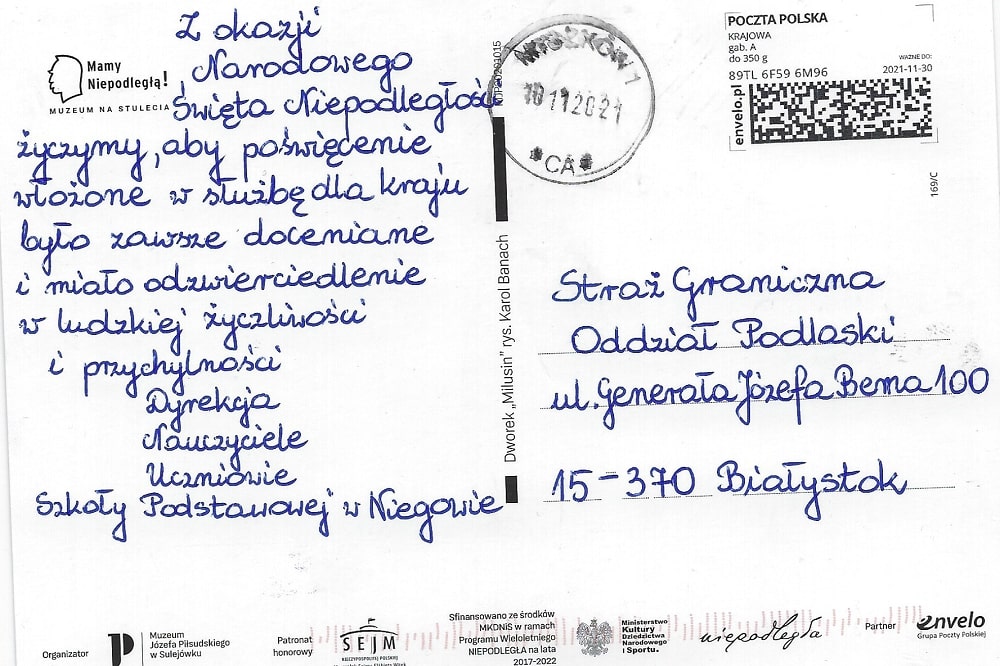 Mamy
Niepodległą!
MUZEUM NA STULECIE
Z okazji
Narodowego
Święta Niepodległości
życzymy, aby poświęcenie
włożone w służbę dla kraju
było zawsze doceniane
i miało odzwierciedlenie
w ludzkiej życzliwości
i przychylności
Dyrekcja
Nauczyciele
Uczniowie
Szkoły Podstawowej w Niegowie
Dworek „Milusin” rys. Karol Banach
10 11 2021
CA
POCZTA POLSKA
KRAJOWA
gab. A
do 350 g
WAŻNE DO:
2021-11-30
89TL 6F59 6M96
envelo.pl
169/C
Straż Graniczna
Oddział Podlaski
ul. Generała Józefa Bema 100
15-370 Białystok
Organizator
Muzeum
Józefa Piłsudskiego
w Sulejówku
Patronat
honorowy
SEJM
RZECZYPOSPOLITEJ POLSKIEJ
Sfinansowano ze środków
MKDNiS w ramach
Programu Wieloletniego
NIEPODLEGŁA na lata
2017-2022
Ministerstwo
Kultury
Dziedzictwa
Narodowego
i Sportu.
niepodległa
Partner
envelo
Grupa Poczty Polskiej